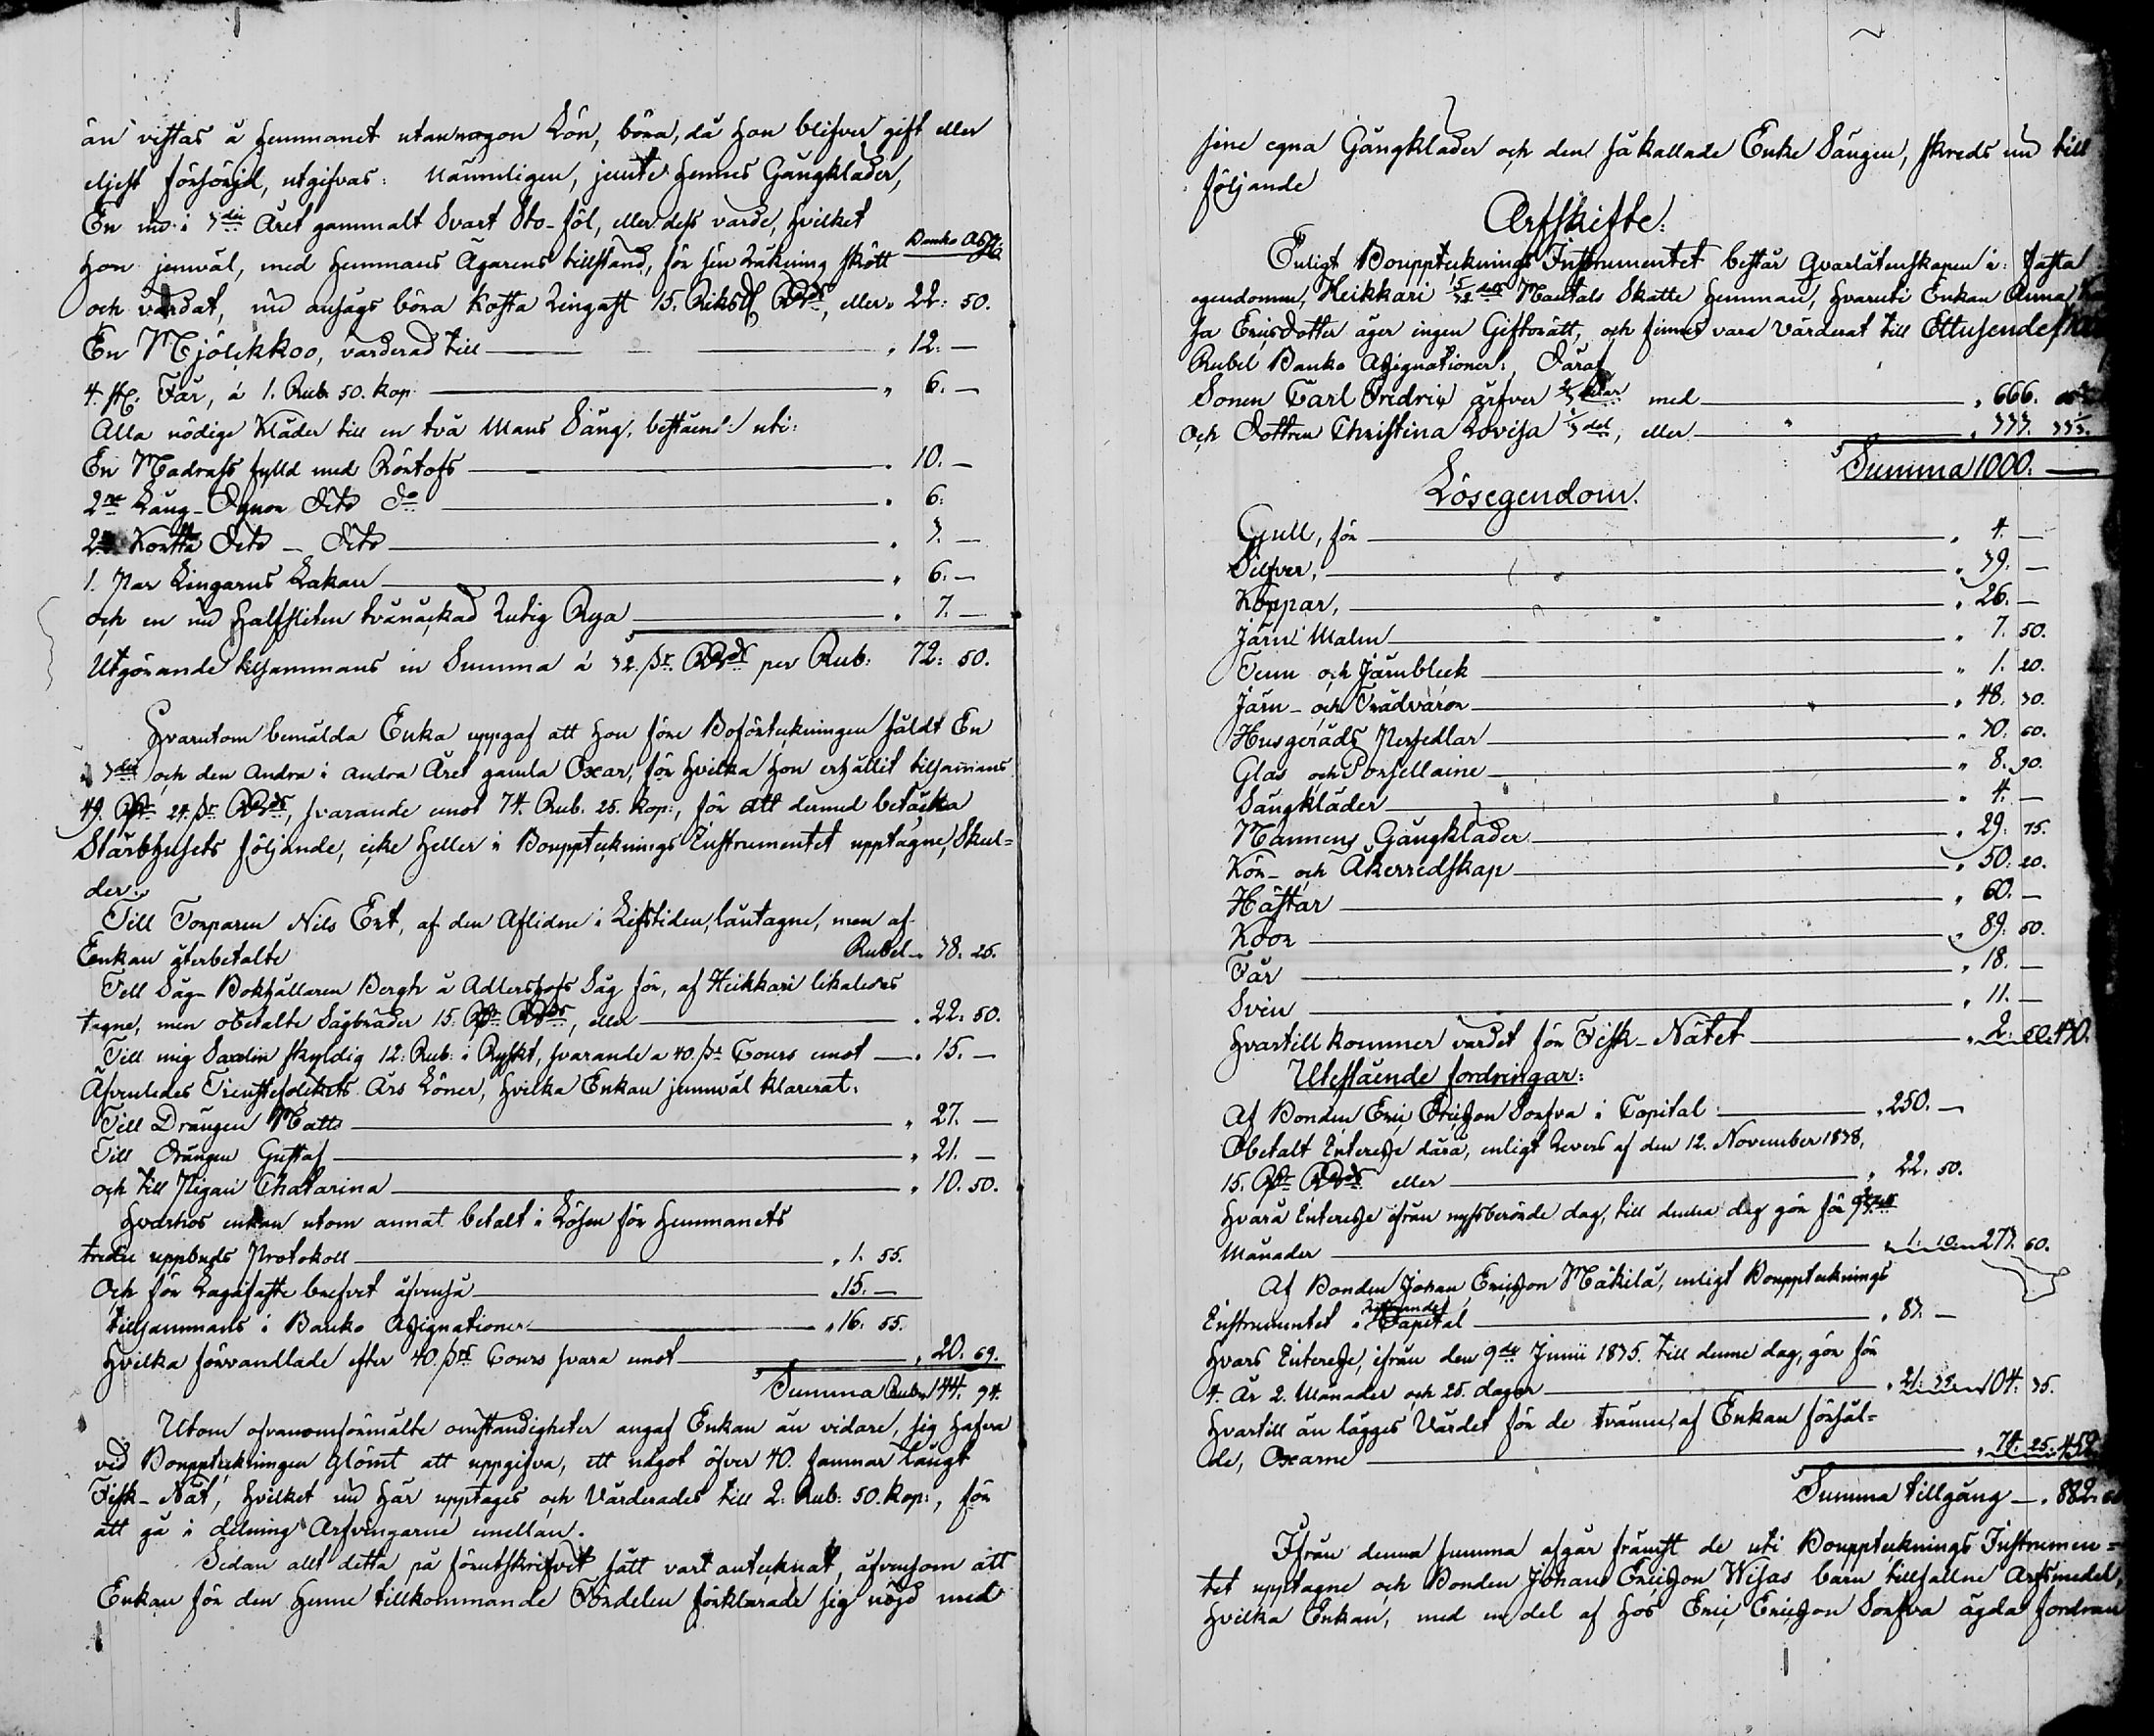 än vistas å hemmanet utan någon Lön, böra, då hon blifver gift eller
eljest försörjd, utgifvas: Nämnligen, jemte hennes Gångkläder,
En nu i 3die Året gammalt Svart Sto-föl, eller dess värde, hvilket
hon jemwäl, med Hemmans Ägarens tillstånd, för sin Räkning skött
Banko Ass:
och vårdat, nu ansågs böra kosta Ringast 15. Riksd RGds, eller " 22: 50.
En Mjölkkoo, värderad till " 12. —
4. st. Får, á 1. Rub. 50. kop. " 6. —
Alla nödige Kläder till en två Mans Säng, bestående uti:
En Madrass fylld med Rörtofs " 10. —
2ne Lång-Dynor dito do " 6:
2ne Kortta dito — dito " 3. —
1. Par Lingarns Lakan " 6. —
och en nu halfsliten tvånäckad Rutig Rya " 7. —
Utgörande tilsammans in Summa á 32. sk RGds per Rub: 72: 50.
Hvarutom bemälda Enka uppgaf att hon före Boförteckningen såldt En
i 3die och den Andra i andra Året gamla Oxar, för hvilka hon erhållit tilsammans
49. Rdr 24. sk RGds, svarande emot 74. Rub. 25. kop:, för att dermed betäcka
Stärbhusets följande, icke heller i Bouppteknings Instrumentet upptagne, Skul=
der:
Till Torparen Nils Ert, af den Aflidne i Lifstiden, låntagne, men af
Enkan återbetalte Rubel " 38. 25.
Till Såg-Bokhållaren Bergh å Adlershofs Såg för, af Heikkari likaledes
tagne, men obetalte Sågbräder 15: Rdr RGds, eller " 22: 50.
Till mig Saxlin skyldig 12: Rub: i Ryskt, svarande a 40. sk Cours emot " 15. —
Äfvenledes Tienstefolkets Års Löner, hvilka Enkan jemnväl klarerat:
Till Drängen Matts " 27. —
Till Drängen Gustaf " 21. —
och till Pigan Chatarina " 10. 50.
Hvarhos enkan utom annat betalt i Lösen för Hemmanets
tredie uppbuds Protokoll " 1. 55.
Och för Lagafaste brefvet äfvenså " 15. —
tillsammans i Banko Assignationer " 16. 55.
Hvilka förvandlade efter 40. sks Cours svara emot " 20. 69.
Summa Rub: 144. 94.
Utom ofvanomförmälte omständigheter angaf Enkan än vidare, sig hafva
ved Bouppteckningen Glömt att uppgifva, ett något öfver 40. famnar långt
Fisk-Nät, hvilket nu här upptages och Värderades till 2: Rub: 50. kop:, för
att gå i delning Arfvingarne emellan.
Sedan allt detta på förutskrifvet sätt vart antecknat, äfvensom att
Enkan för den henne tillkommande Fördelen förklarade sig nöjd med
sine egna Gångkläder och den så kallade Enke Sängen, skreds nu till
följande
Arfskifte:
Enligt Bouppteknings Instrumentet består Qvarlåtenskapen i: fasta
egendomen, Heikkari 5/32 dels Mantals Skatte Hemman, hvaruti Enkan Anna
sa Ericsdotter äger ingen Giftorätt, och finnes vara Värderat till Ettusende
Rubel Banko Assignationer. Däraf
Sonen Carl Fredric ärfver 2/3 delar med " 666.
Och Dottren Christina Lovisa 1/3 del, eller " 333. 33 1/3.
Summa 1000. —
Lösegendom.
Gull, för " 4. —
Silfver, " 39. —
Koppar, " 26. —
Järn Malm " 7. 50.
Tenn och Järnbleck " 1. 20.
Järn- och Trädvaror " 48. 30.
Husgeråds Persedlar " 30. 60.
Glas och Porsellaine " 8. 90.
Sängkläder " 4. —
Mannens Gångkläder " 29. 75.
Kör- och Åkerredskap " 50. 20.
Hästar " 60. —
Koor " 89. 50.
Får " 18. —
Svin " 11. —
Hvartill kommer värdet för Fisk-Nätet " 2. 50. 430.
Utestående fordringar:
Af Bonden Eric Ericsson Sorfva i Capital " 250. —
Obetalt Interesse därå, enligt Revers af den 12. November 1838,
15. Rdr RGds eller " 22. 50.
Hvara Interesse ifrån nyssberörde dag, till denna dag gör för
Månader " 1. 10. 273. 60.
Af Bonden Johan Ericsson Mäkilä, enligt Bouppteknings
Instrumentet i Capital " 83. —
Hvars Interesse, ifrån den 9de Junii 1835. till denne dag, gör för
4. År 2. Månader och 25. dagar " 21. 35. 104. 35.
Hvartill än lägges Värdet för de tvänne, af Enkan försål=
de, Oxarne " 74. 25. 452
Summa tillgång — " 882.
Ifrån denna summa afgår främst de uti Bouppteknings Instrumen=
tet upptagne och Bonden Johan Ericsson Wisas barn tillfallne Arfsmedel,
Hvilka Enkan, med en del af hos Eric Ericsson Sorfva ägda fordran